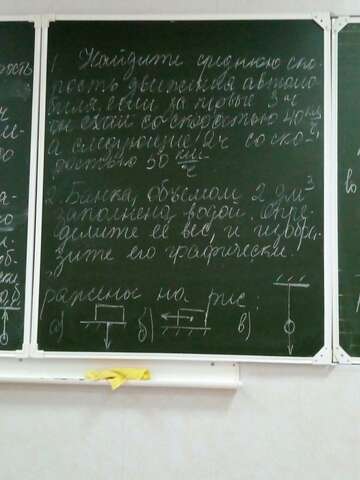 1. Найдите среднюю ско-
рость движения автомо-
биля если за первые 3 ч
он ехал со скоростью 40 км/ч
а следующие 2 ч со ско-
ростью 50 км/ч
2. Банка, объёмом 2 дм³
заполнена водой. Опре-
делите её вес, и изобра-
зите его графически.
ражены на рис:
а) б) в)